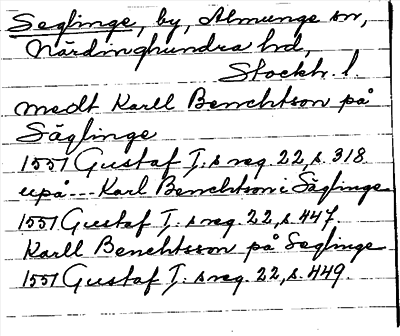 Seglinge, by, Almunge sn,
Närdinghundra hd,
Stockh. l.
medt Karll Benchtson på
Säglinge
1551 Gustaf I:s reg. 22, s. 318.
upå --- Karl Benchtson i Säglinge
1551 Gustaf I:s reg. 22, s. 447.
Karll Benchtsson på Seglinge
1551 Gustaf I:s reg. 22, s. 449.